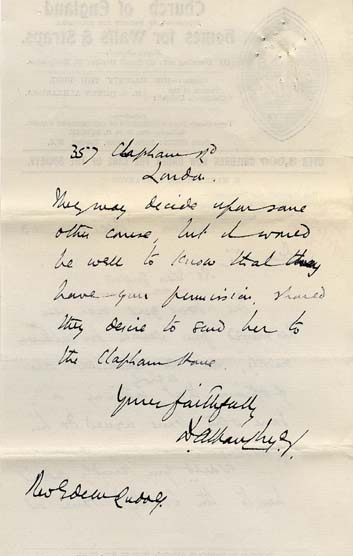 357 Clapham Rd
London.
They may decide upon some
other course, but it would
be well to know that they
have your permission, should
they desire to send her to
the Clapham Home.
Yours faithfully
Rev Edew